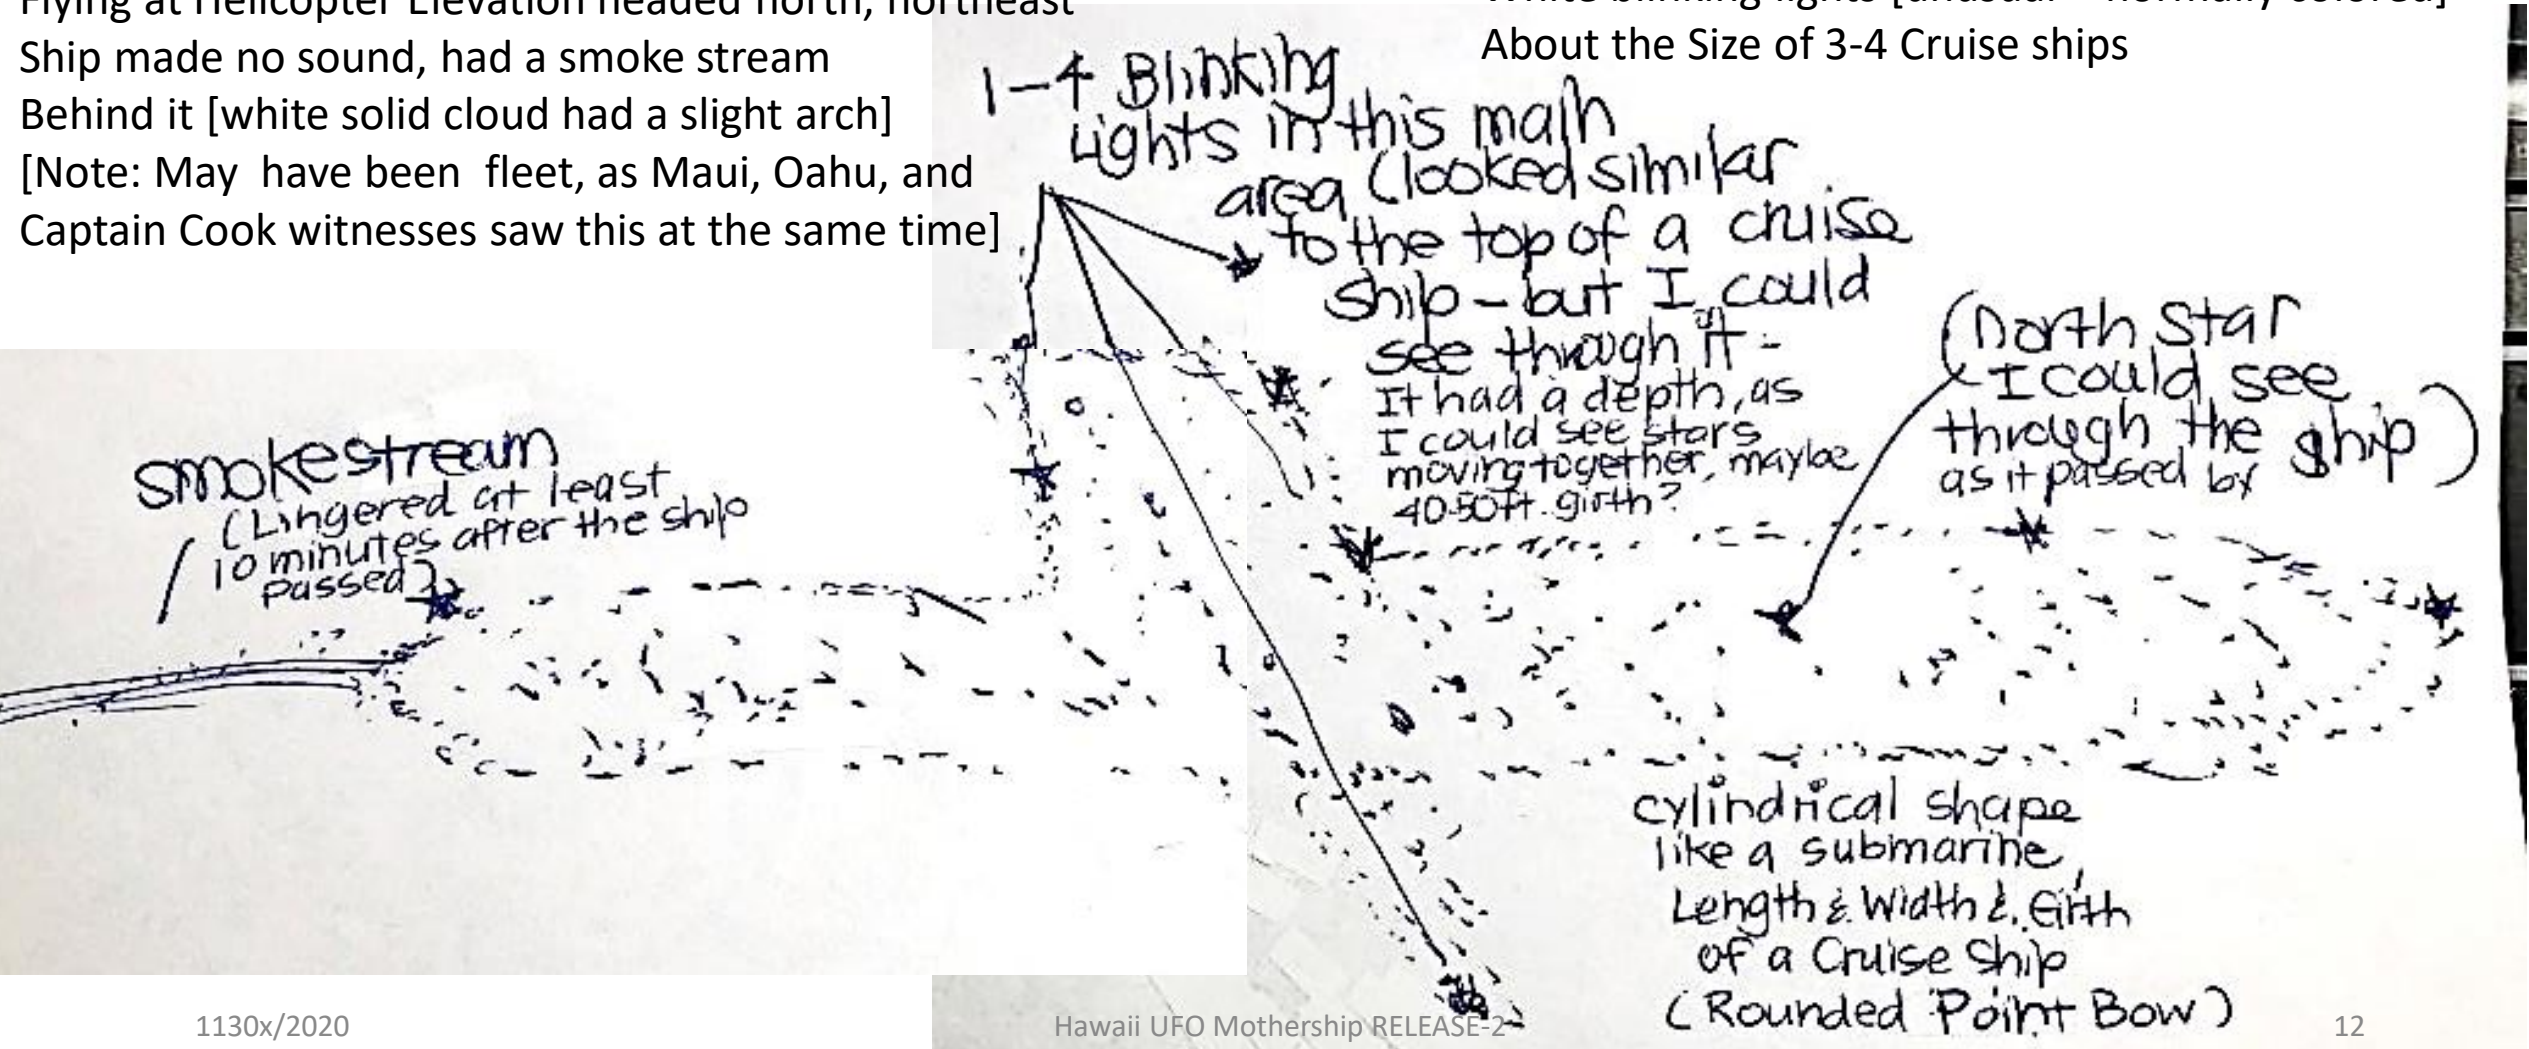 Flying at Helicopter Elevation headed north, northeast
Ship made no sound, had a smoke stream
Behind it [white solid cloud had a slight arch]
[Note: May  have been  fleet, as Maui, Oahu, and
Captain Cook witnesses saw this at the same time]
White blinking lights [unusual – normally colored]
About the Size of 3-4 Cruise ships
1-4 Blinking
Lights in this main
area (looked similar
to the top of a cruise
ship - but I could
see through it -
It had a depth, as
I could see stars
moving together, maybe
40-50ft. girth?
(North Star
- I could see
through the ship)
as it passed by
smokestream
(Lingered at least
10 minutes after the ship
passed)
cylindrical shape
like a submarine,
Length & Width & Girth
of a Cruise Ship
(Rounded Point Bow)
1130x/2020
Hawaii UFO Mothership RELEASE-2
12